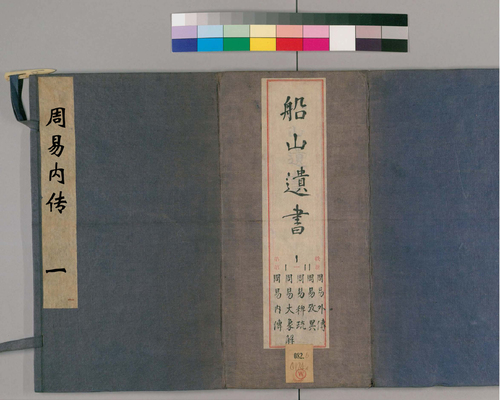 周易内传
一
船山遺書
周易内傳
周易大象解
周易稗疏
周易攷異
周易外傳
052.